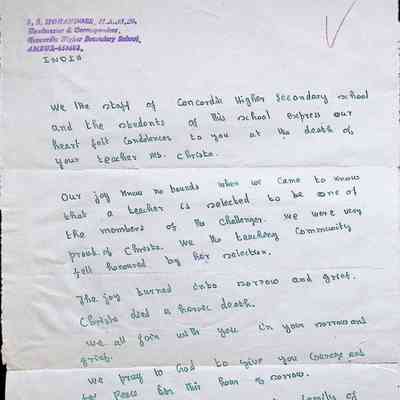 Headmaster & Correspondent,
Concordia Higher Secondary School,
AMBUR-635802,
INDIA
We the staff of Concordia Higher Secondary school
and the students of this school express our
heart felt Condolences to you at the death of
your teacher Ms. Christa.
Our joy knew no bounds when we came to know
that a teacher is selected to be one of
the members of the Challenger. We were very
proud of Christa. We the teaching Community
fell honoured by her selection.
The joy turned into sorrow and grief.
Christa died a heroic death.
We all join with you in your sorrow and
grief.
We pray to God to give you Courage and
Peace this hour of sorrow.
family of